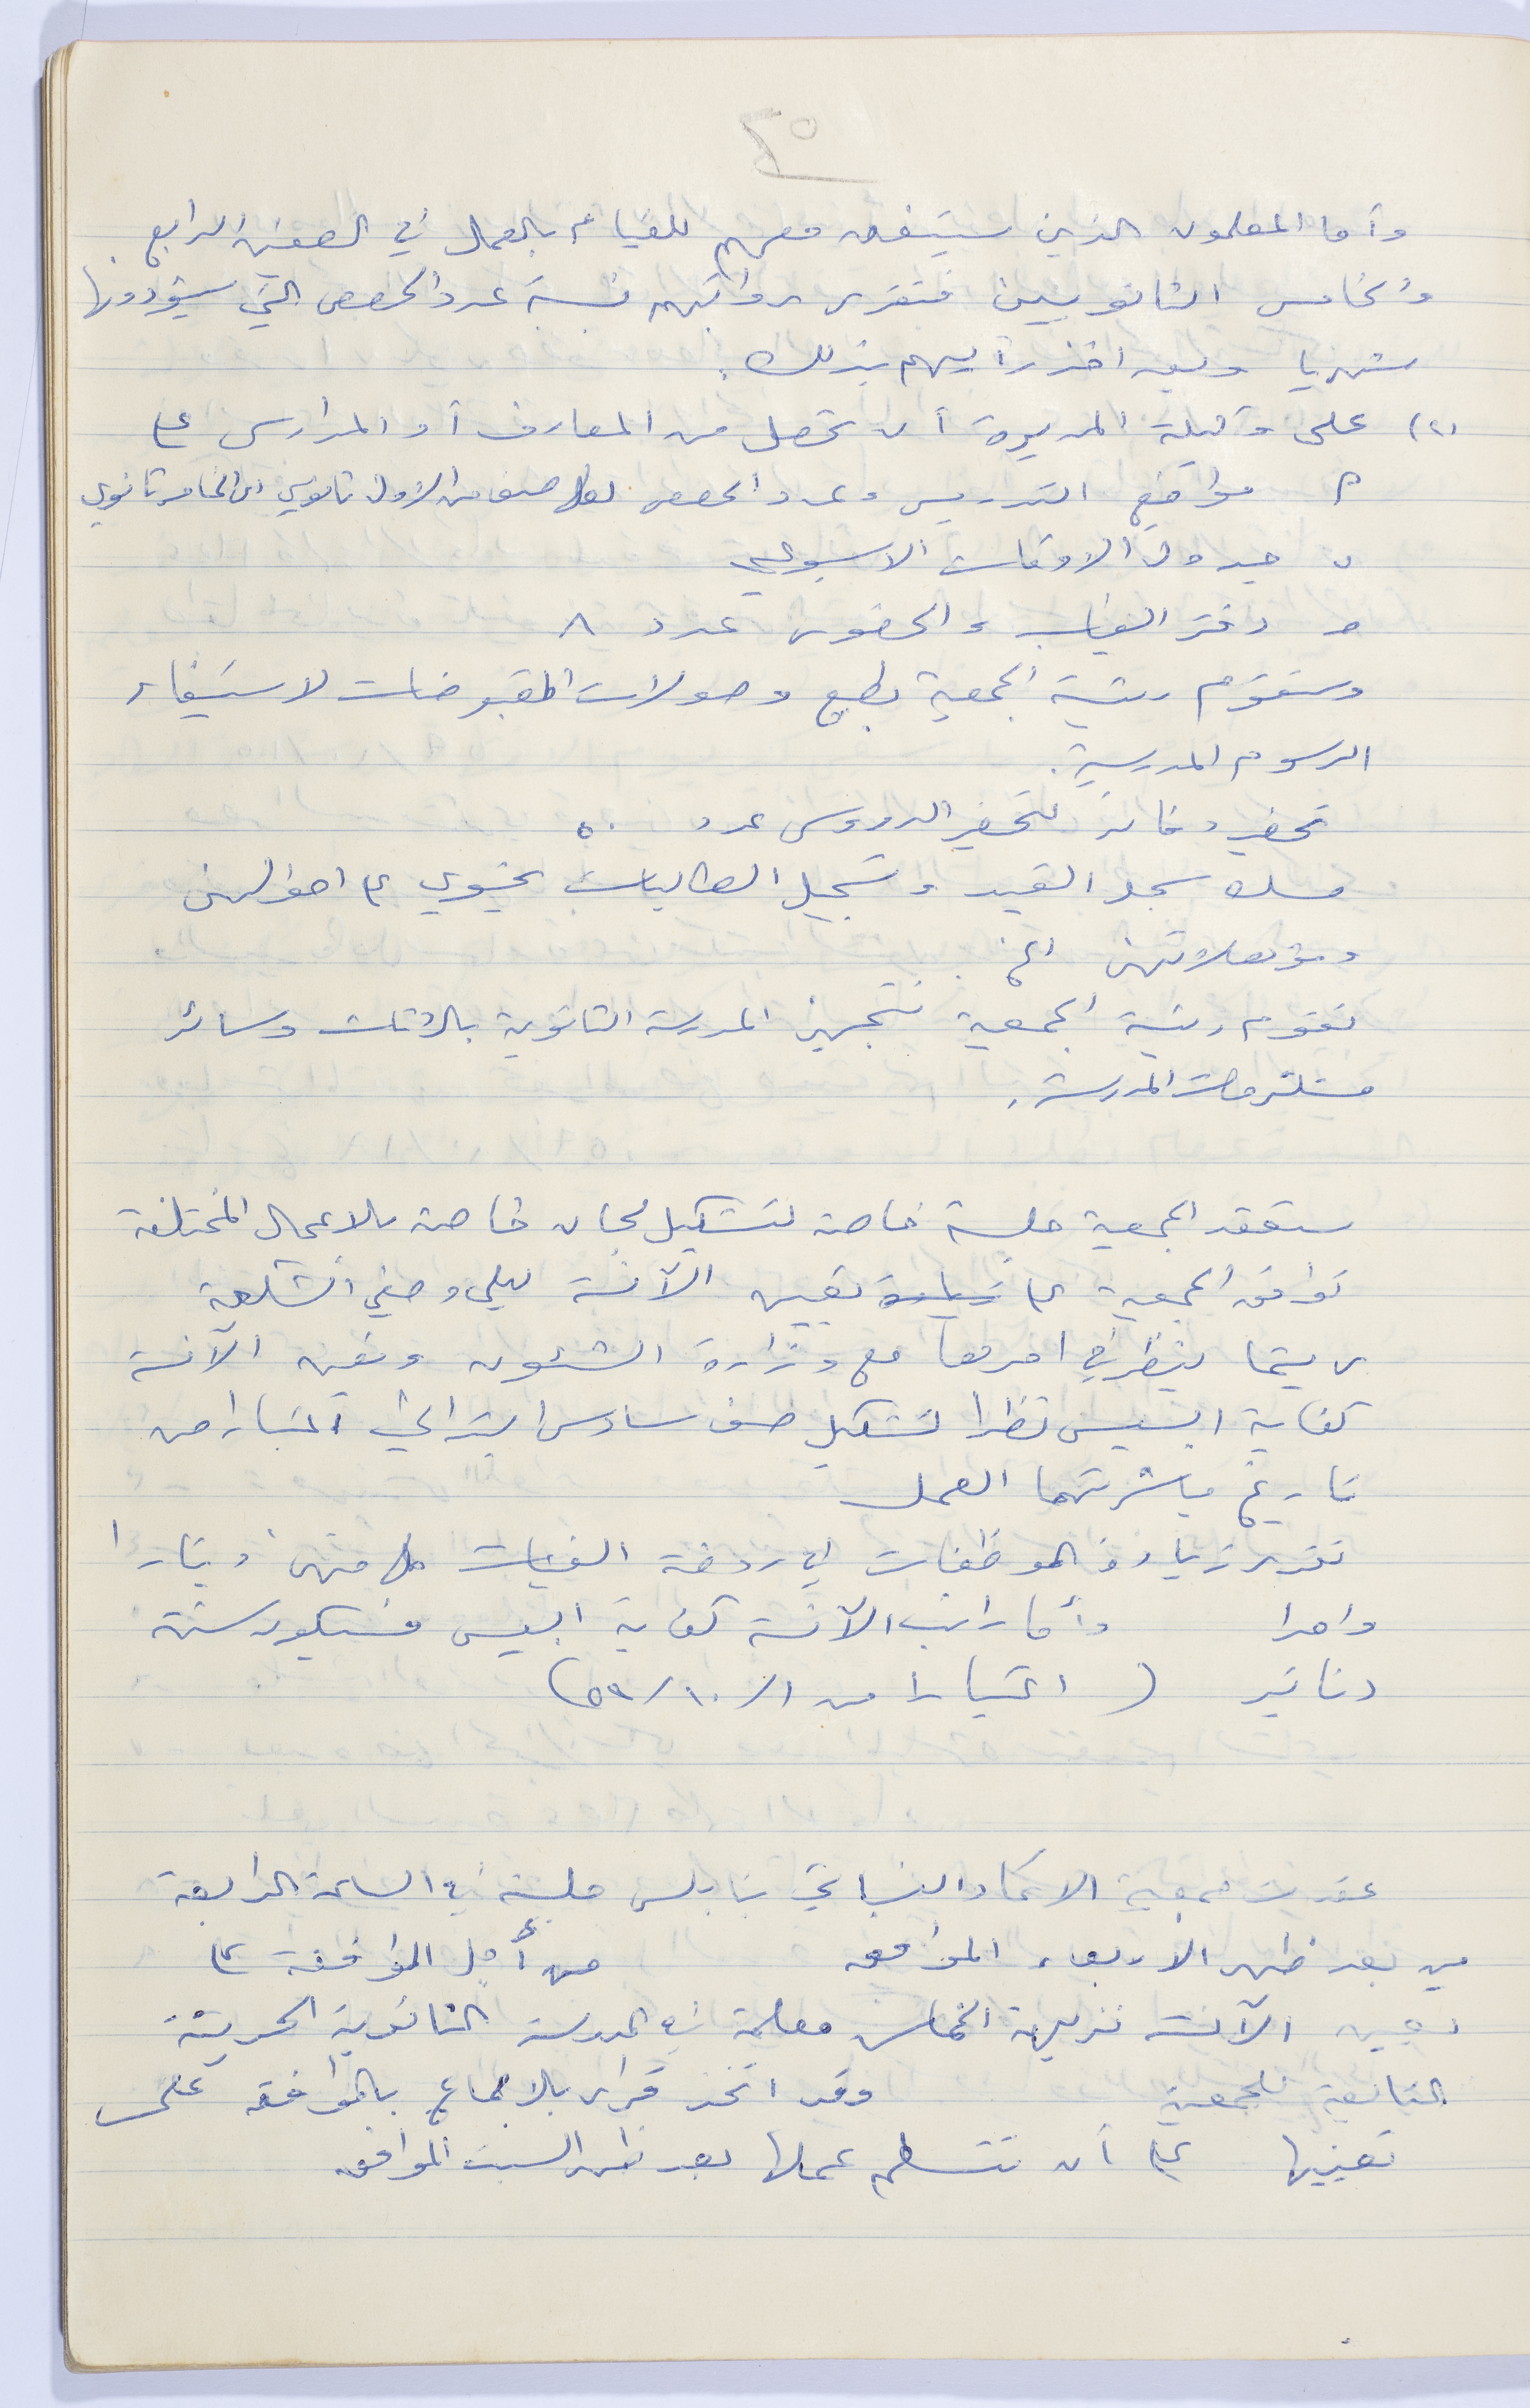 ٢٥
وأما المعلمون الذين سيتفق معهم للقيام بالعمل في الصفين الرابع
والخامس الثانويين فتقرر رواتبهم نسبة عدد الحصص التي سيؤدونها
شهريا وبعد اخذ رأيهم بذلك.
(٢) على وكيلة المديرة أن تحصل من المعارف أو المدارس على
أ مواضيع التدريس وعدد الحصص لكل صف من الاول ثانوي الى الخامس ثانوي
ب جدول الاوقات الاسبوعي
ج دفتر الغياب والحضور عدد ٨
وستقوم رئيسة الجمعية بطبع وصولات المقبوضات لاستيفاء
الرسوم المدرسية.
تحضير دفاتر لتحضير الدروس عدد ٥٠
مسك سجل القيد وتسجيل الطالبات يحتوي على احوالهن
ومؤهلاتهن الخ.
تقوم رئيسة الجمعية بتجهيز المدرسة الثانوية بالاثاث وسائر
مستلزمات المدرسة.
ستعقد الجمعية جلسة خاصة لتشكيل لجان خاصة بالاعمال المختلفة
توافق الجمعية على زيادة تعيين الآنسة ليلى وصفي الشكعة
ريثما ينظر في امرها مع وزارة الشئون وتعين الآنسة
كفاية ابسيس نظرا لتشكيل صف سادس ابتدائي اعتبارا من
تاريخ مباشرتهما العمل
تقرر زيادة الموظفات في روضة الفتيات كل منهن دينارا
واحدا وأما راتب الآنسة كفاية ابسيس فسيكون ستة
دنانير (اعتبارا من ١/١٠/٥٩)
عقدت جمعية الاتحاد النسائي بنابلس جلسة في الساعة الرابعة
من بعد ظهر الأربعاء الموافق من أجل الموافقة على
تعيين الآنسة نزيهة الخماش معلمة في المدرسة الثانوية الحديثة
التابعة للجمعية وقد اتخذ قرار بالاجماع بالموافقة على
تعيينها على أن تتسلم عملها بعد ظهر السبت الموافق